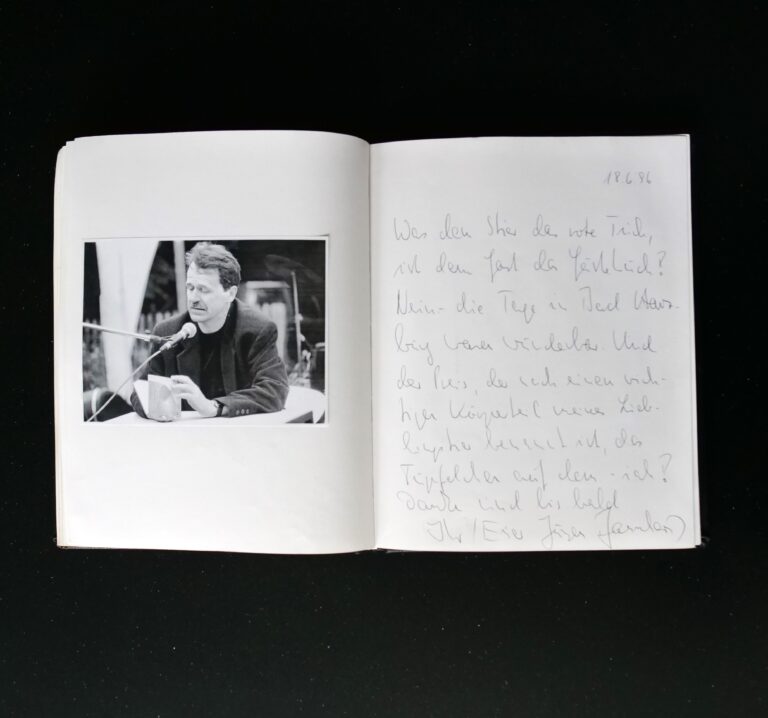 18.6.96
Was dem Stier das rote Tuch,
ist dem Gast das Gästebuch?
Nein - die Tage in Bad Harz-
burg waren wunderbar. Und
der Preis, der nach einem wich-
tigen Körperteil meiner Lieb-
lingstier benannt ist, das
Tüpfelchen auf dem - ich?
Danke und bis bald
Ihr / Euer Jürgen